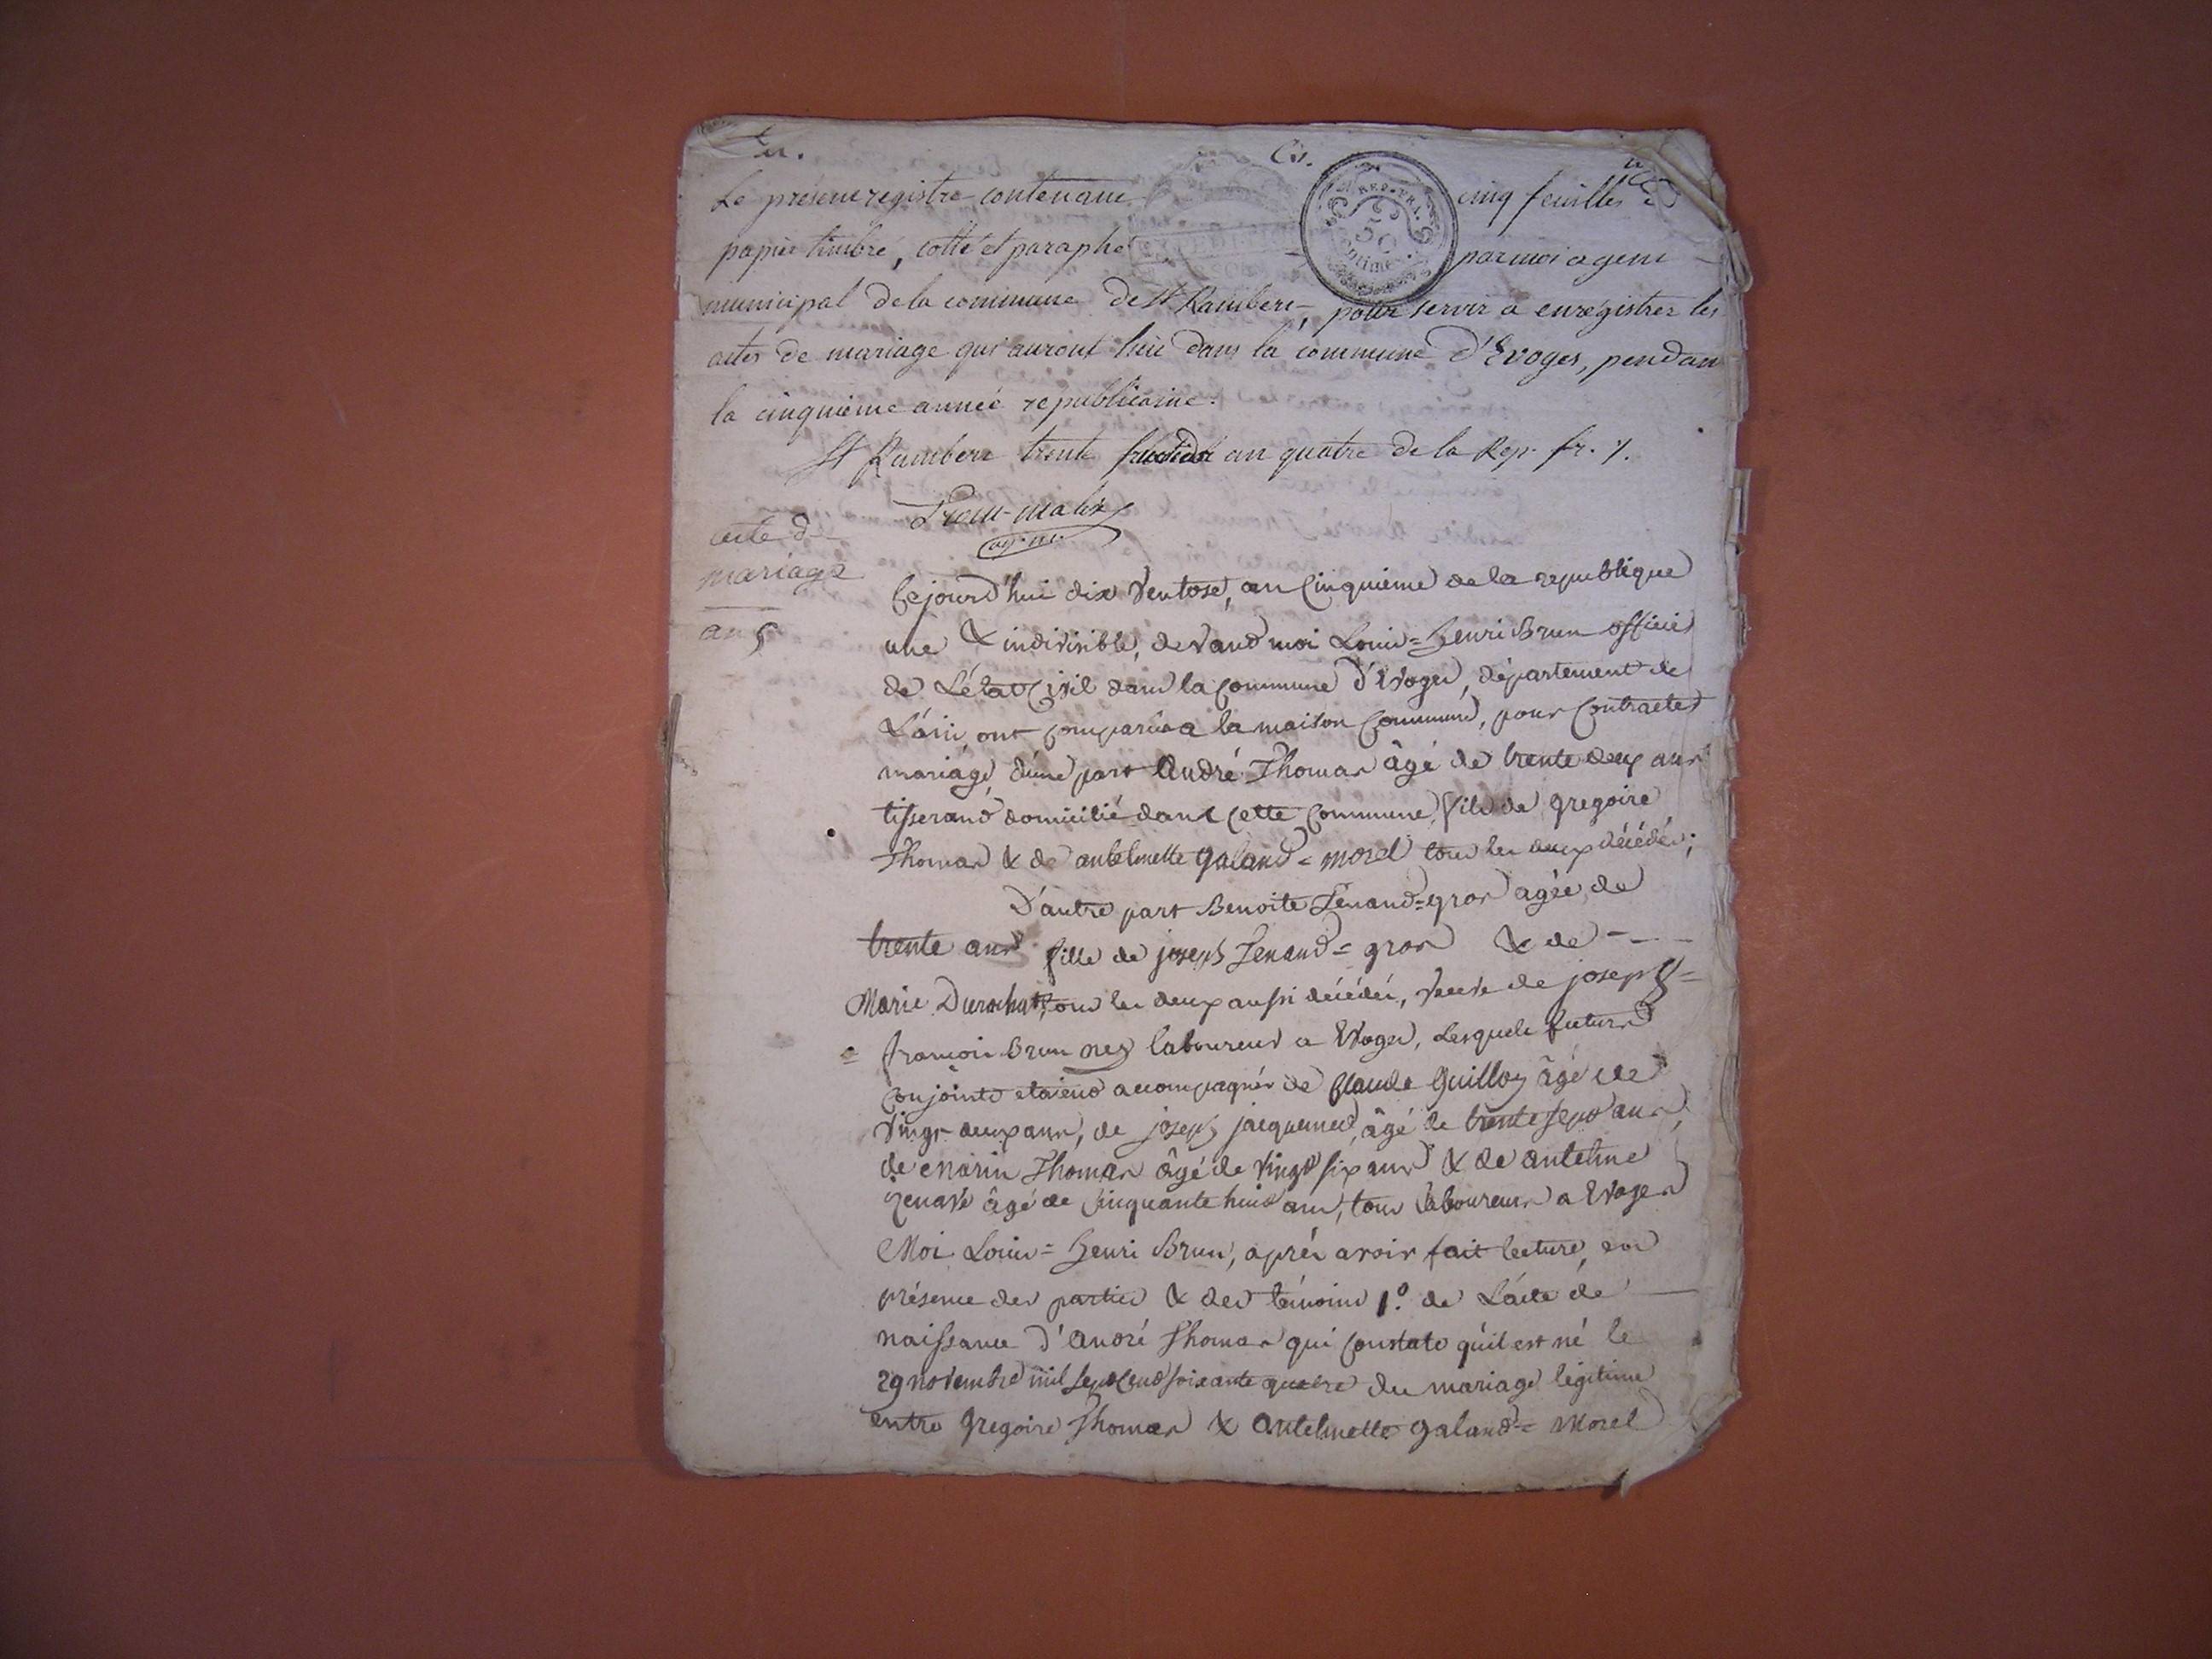 Le présent registre contenant cinq feuilles de
papier timbré, cotté et paraphé par moi agent
municipal de la commune de St Rambert, pour servir a enrégistrer les
actes de mariage qui auront lieu dans la commune d'Evoges, pendant
la cinquième année républicaine.
St Rambert trente fructidor an quatre de la Rep. fr. ·/.
REP. FRA.
50
centimes
ag. m.
acte de
mariage
an 5
Cejourd'hui dix Ventose, an Cinquième de la republique
une & indivisible, devand moi Louis=henri Brun officier
de L'état Civil dans la Commune d'Evoges, département de
L'ain, ont comparûs a la maison Commune, pour Contracter
mariage, d'une part André Thomas âgé de trente deux ans
tisserand domicilié dans Cette Commune, fils de gregoire
Thomas & de antelmette galand=morel tous les deux décédés;
D'autre part Benoite Tenand=gros agée de
trente ans fille de joseph Tenand=gros & de
Marie Durochat, tous les deux aussi décédés, veuve de joseph=
=françois Brun nez laboureur a Evoges, Lesquels futurs
Conjoints etoiend accompagnés de Claude Guilloz âgé de
vingt-deux ans, de joseph jacquemet, âgé de trente sept ans,
de Marin Thomas âgé de vingt six ans & de antelme
âgé de Cinquante huit ans, tous laboureurs a Evoges
Moi Louis=henri Brun, après avoir fait lecture, en
présence des parties & des témoins 1.° de L'acte de
naissance d'André Thomas qui Constate qu'il est né le
29 novembre mil sept Cend soixante quatre du mariage légitime
entre gregoire Thomas & Antelmette galand=Morel